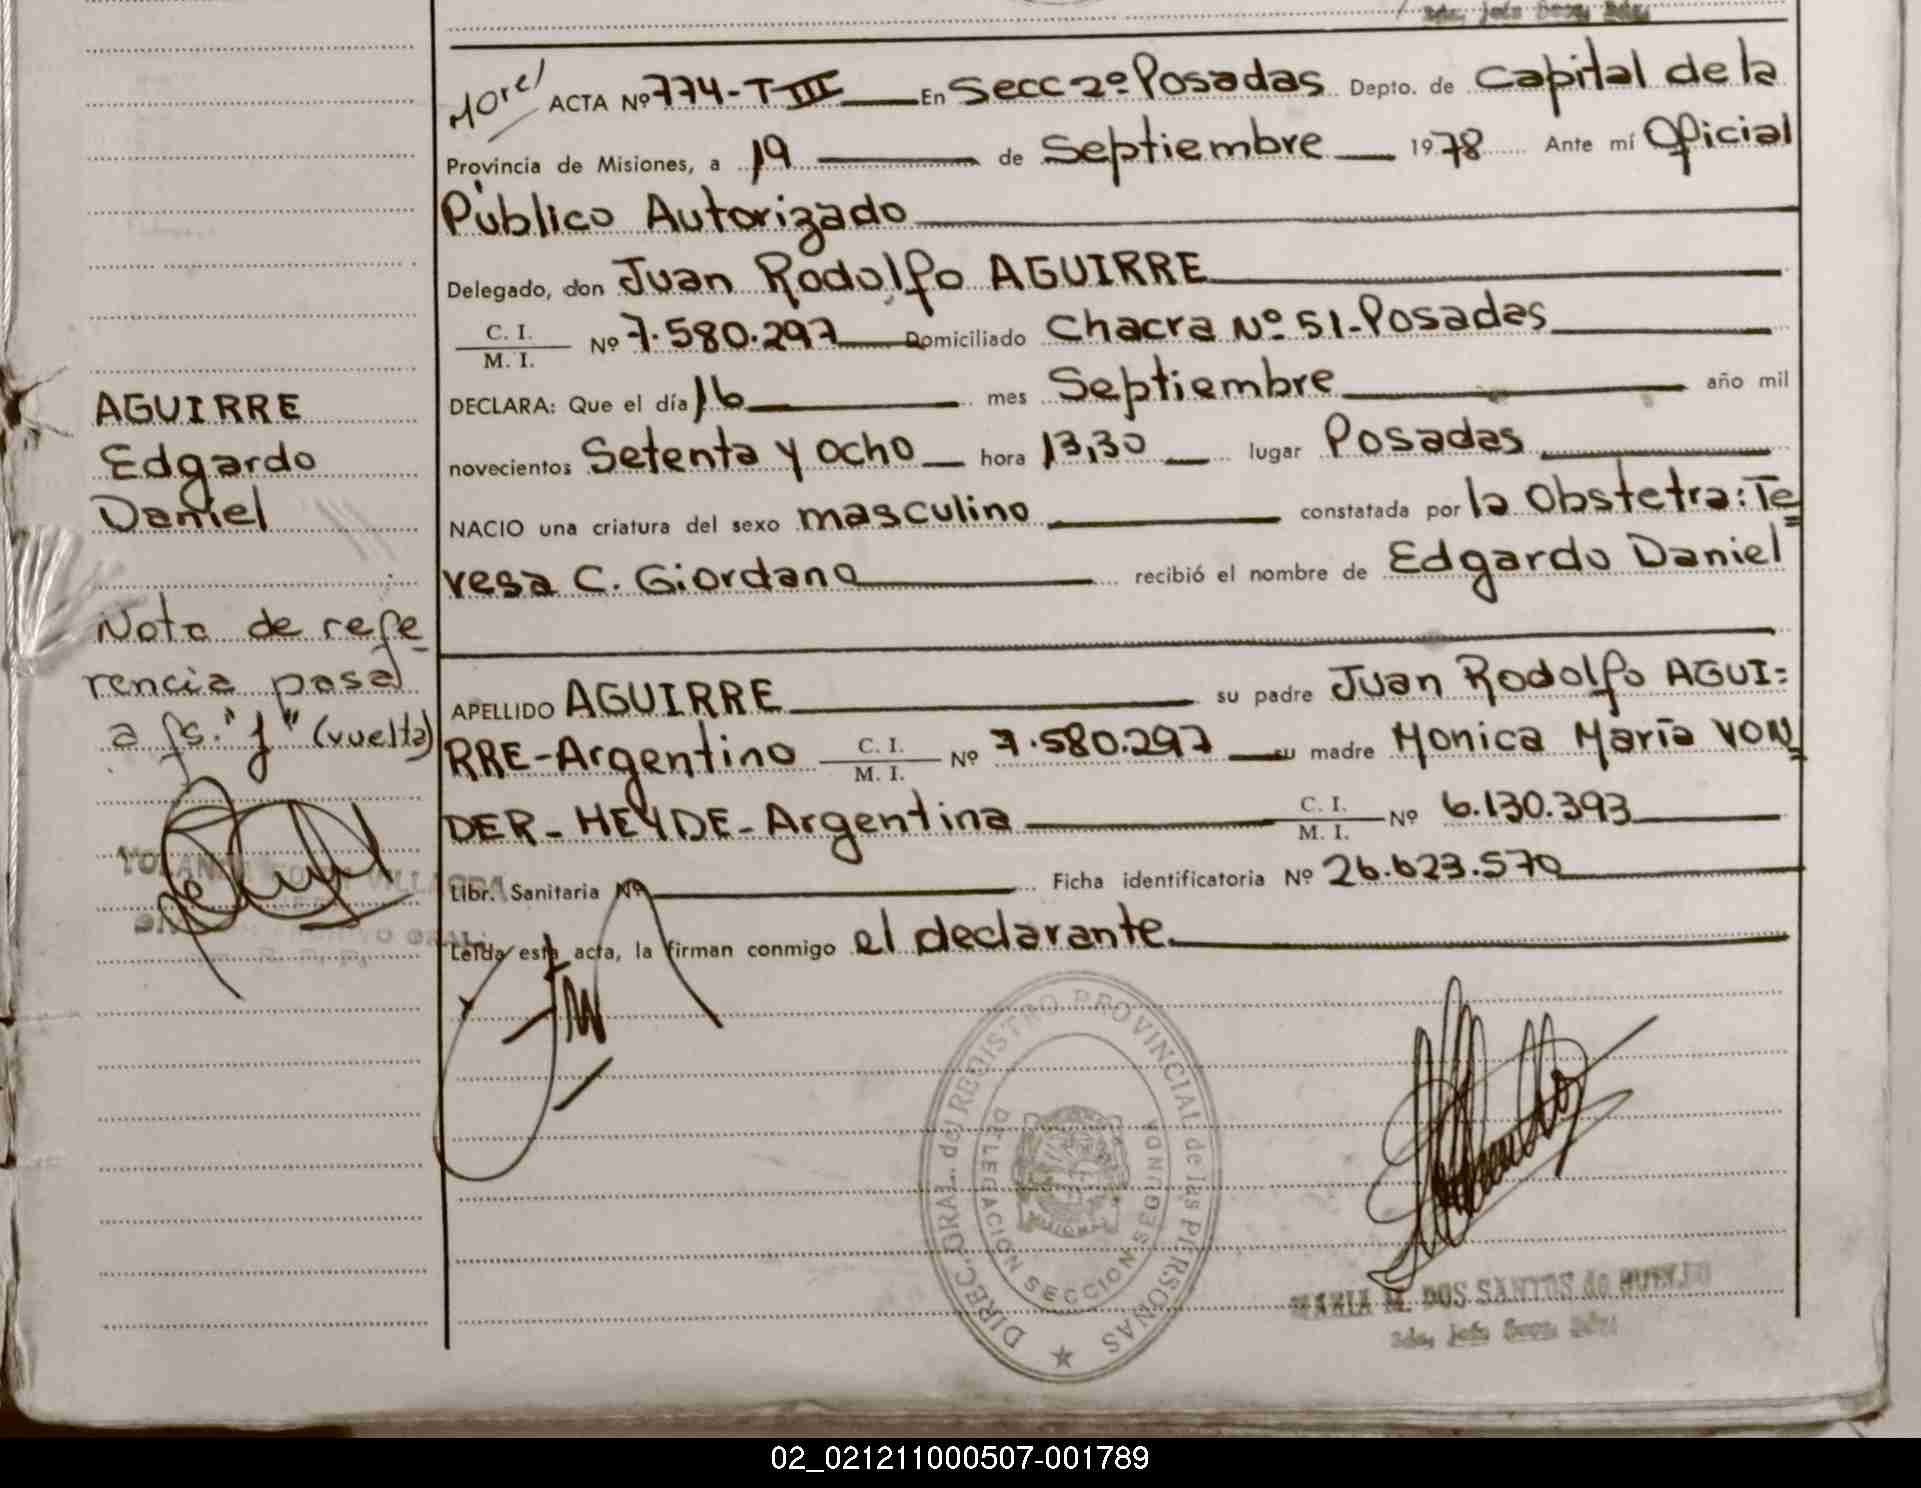 Morel ACTA Nº 774-T III En Secc 2º Posadas Depto. de Capital de la
Provincia de Misiones, a 19 de Septiembre 1978 Ante mí Oficial
Público Autorizado
Delegado, don Juan Rodolfo AGUIRRE
C. I.
M. I. Nº 7.580.297 Domiciliado Chacra Nº 51-Posadas
DECLARA: Que el día 16 mes Septiembre año mil
novecientos Setenta y ocho hora 13,30 lugar Posadas
NACIO una criatura del sexo masculino constatada por la Obstetra: Te=
resa C. Giordano recibió el nombre de Edgardo Daniel
APELLIDO AGUIRRE su padre Juan Rodolfo AGUI=
RRE-Argentino C. I. M. I. Nº 7.580.297 su madre Monica María VON=
DER-HEYDE-Argentina C. I. M. I. Nº 6.130.393
Libr. Sanitaria Nº Ficha identificatoria Nº 26.623.570
Leída esta acta, la firman conmigo el declarante
AGUIRRE
Edgardo
Daniel
Nota de refe-
rencia pasa
a fs. "1" (vuelta)
DIREC. GRAL. del REGISTRO PROVINCIAL de las PERSONAS
DELEGACION SECCION SEGUNDA
MARIA M. DOS SANTOS de
02_021211000507-001789